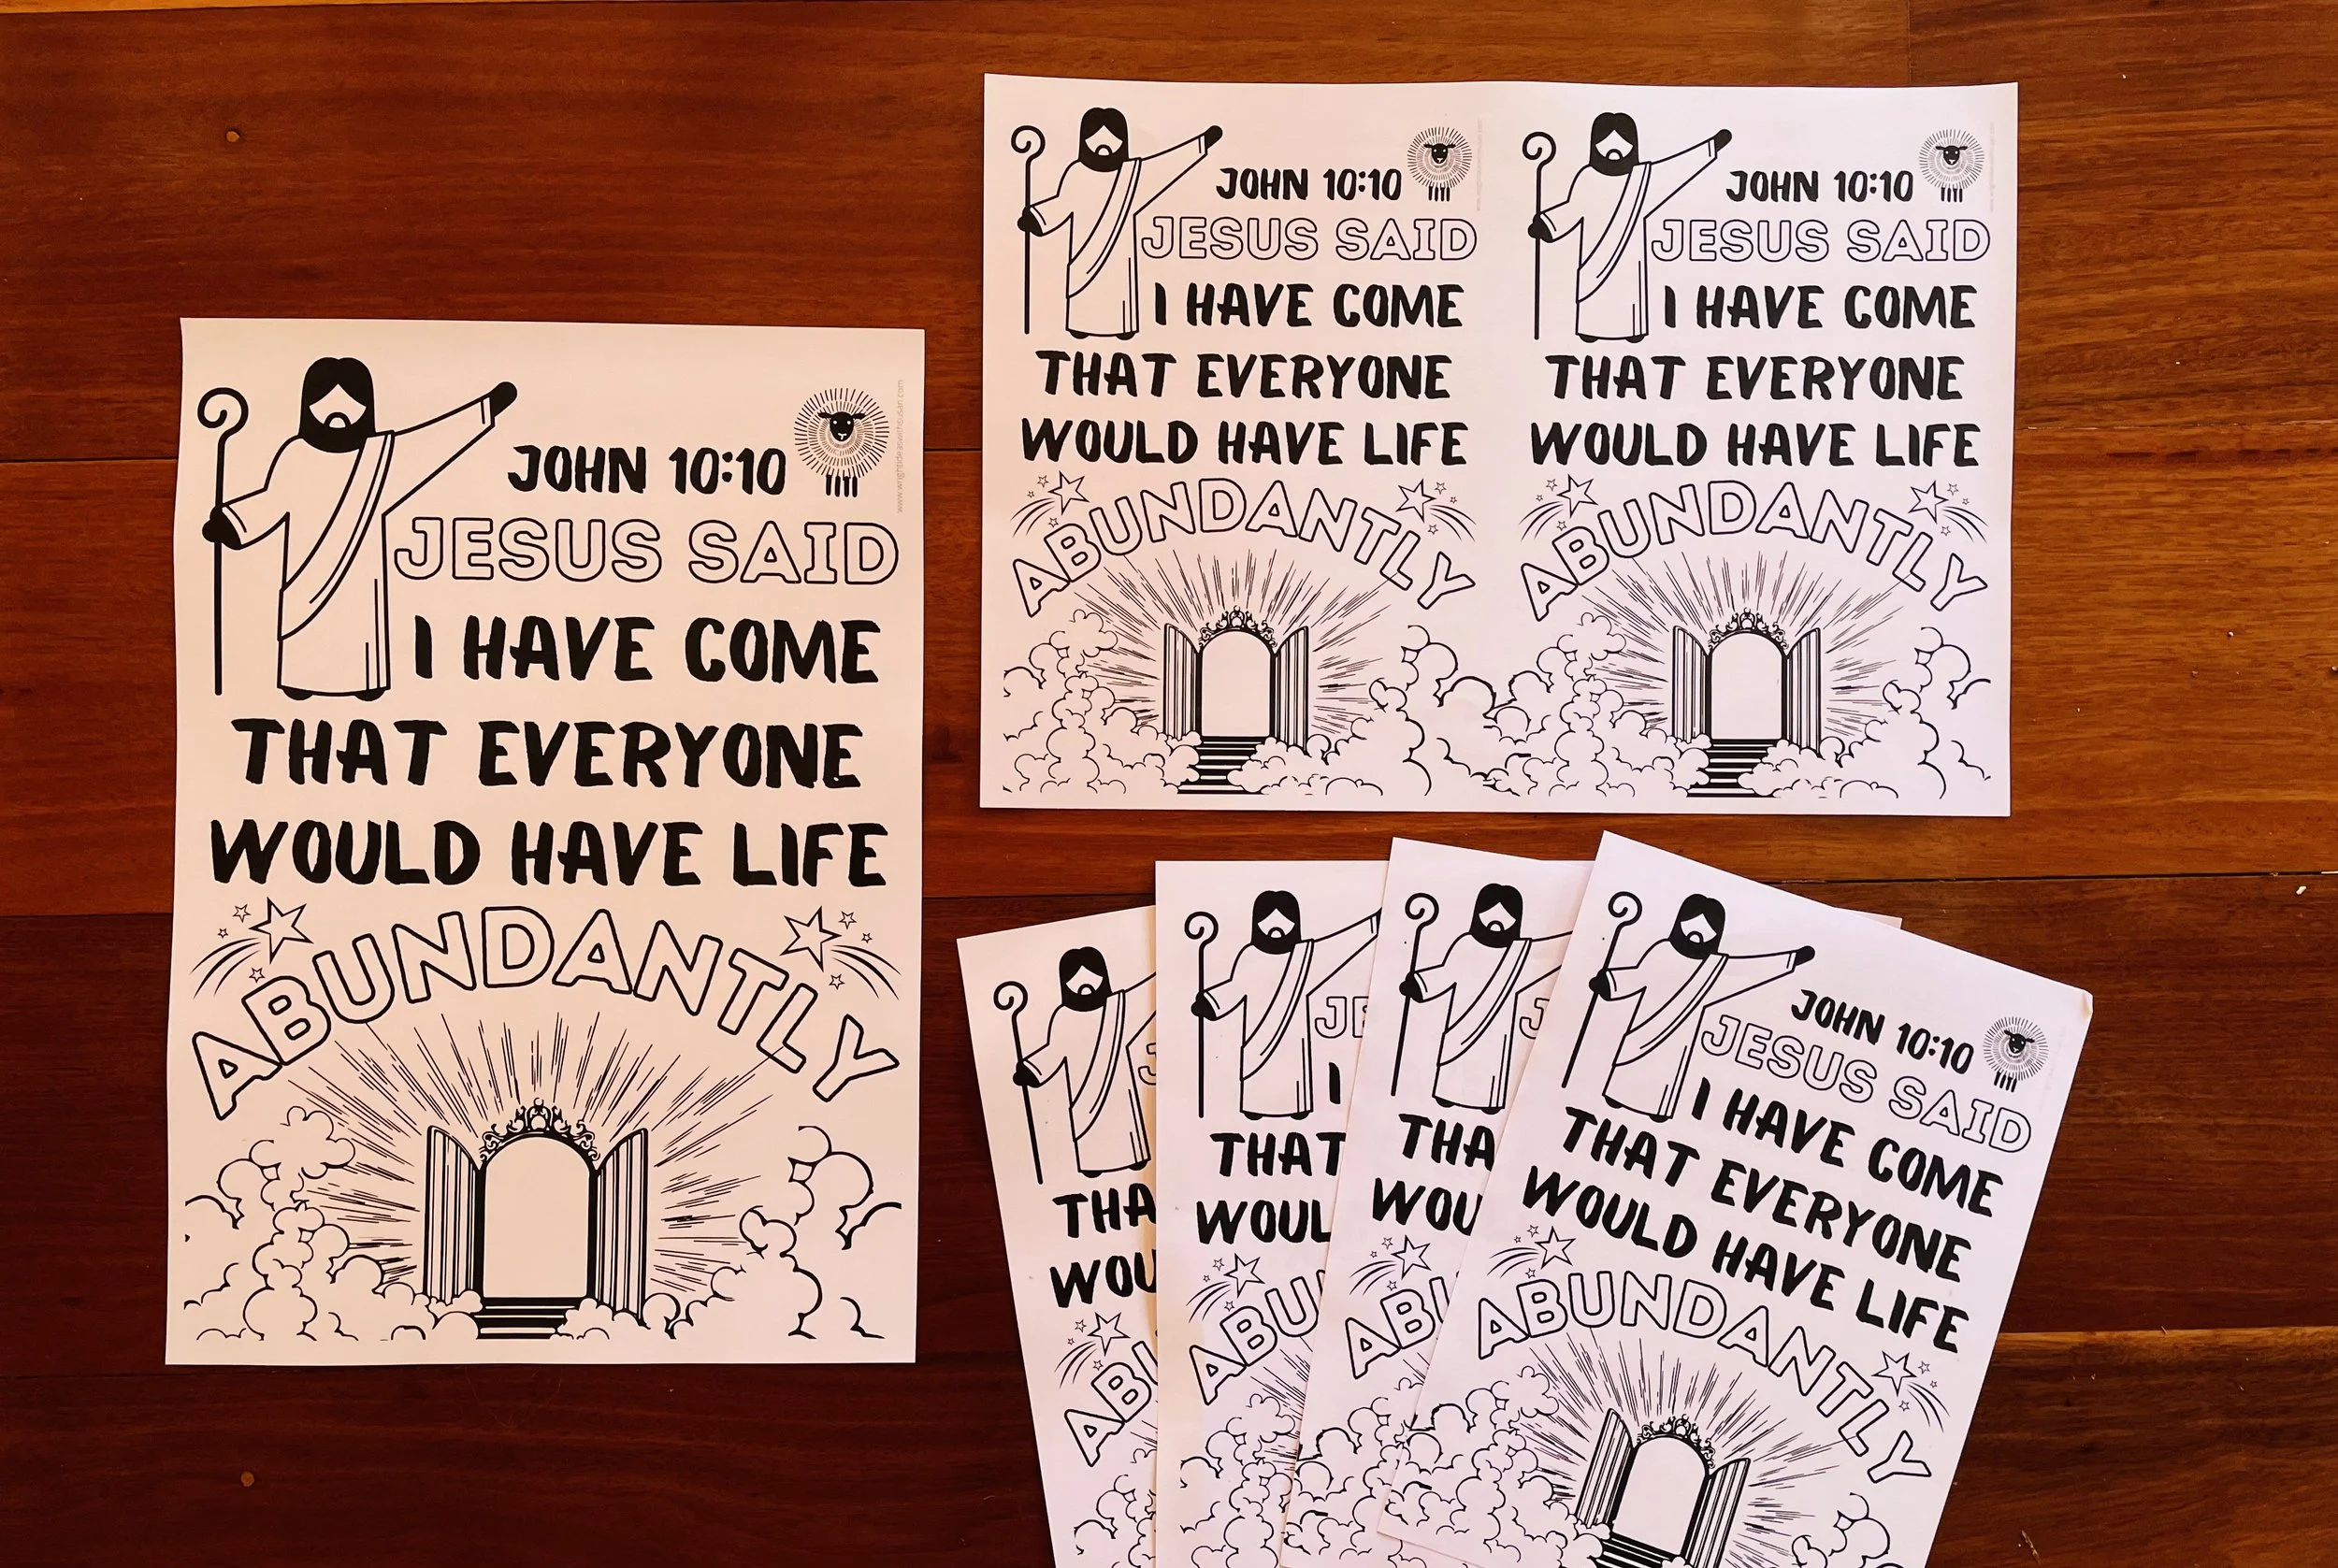 JOHN 10:10
JESUS SAID
I HAVE COME
THAT EVERYONE
WOULD HAVE LIFE
ABUNDANTLY
JOHN 10:10
JESUS SAID
I HAVE COME
THAT EVERYONE
WOULD HAVE LIFE
ABUNDANTLY
JOHN 10:10
JESUS SAID
I HAVE COME
THAT EVERYONE
WOULD HAVE LIFE
ABUNDANTLY
J
THA
WOU
ABU
JE
I
THAT
WOUL
ABU
J
THA
WOU
ABU
JOHN 10:10
JESUS SAID
I HAVE COME
THAT EVERYONE
WOULD HAVE LIFE
ABUNDANTLY